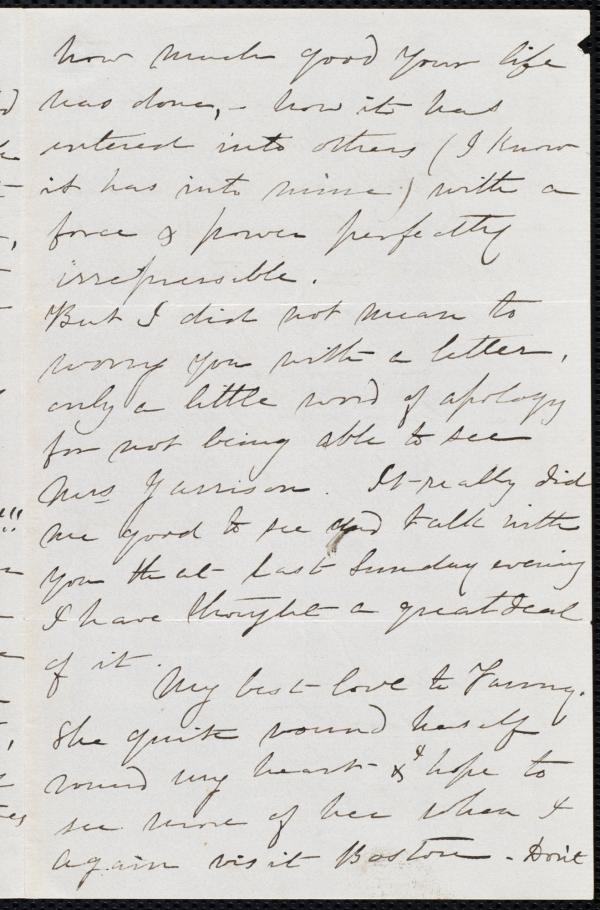 how much good your life
has done, - how it has
entered into others (I know
it has into mine) with a
force & power perfectly
irrepressible.
But I did not mean to
worry you with a letter,
only a little word of apology
for not being able to see
Mrs Garrison. It really did
me good to see and talk with
you that last Sunday evening
I have thought a great deal
of it.
My best love to Fanny.
She quite wound herself
round my heart & I hope to
see more of her when I
again visit Boston - Don't